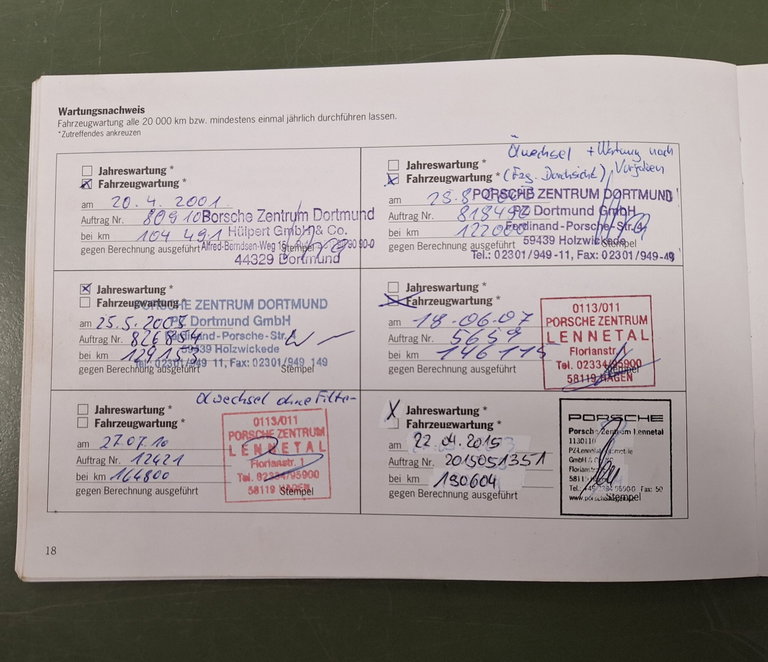 Wartungsnachweis
Fahrzeugwartung alle 20 000 km bzw. mindestens einmal jährlich durchführen lassen.
*Zutreffendes ankreuzen
Jahreswartung *
Fahrzeugwartung *
am 20.4.2001
Auftrag Nr. 80910
bei km 104 491
gegen Berechnung ausgeführt
Porsche Zentrum Dortmund
Hülpert GmbH & Co.
Alfred-Berndsen-Weg
44329 Dortmund
Stempel
Ölwechsel + Wartung nach
(Fzg. Durchsicht) Vorgaben
Jahreswartung *
Fahrzeugwartung *
am
Auftrag Nr. 818490
bei km 122000
gegen Berechnung ausgeführt
PORSCHE ZENTRUM DORTMUND
PZ Dortmund GmbH
Ferdinand-Porsche-Str.
59439 Holzwickede
Tel.: 02301/949-11, Fax: 02301/949-49
Stempel
Jahreswartung *
Fahrzeugwartung *
am 25.5.2005
Auftrag Nr.
bei km
gegen Berechnung ausgeführt
PORSCHE ZENTRUM DORTMUND
PZ Dortmund GmbH
Ferdinand-Porsche-Str. 1
59439 Holzwickede
Tel.: 02301/949 11, Fax: 02301/949 149
Stempel
Jahreswartung *
Fahrzeugwartung *
am 18.06.07
Auftrag Nr. 5659
bei km 146115
gegen Berechnung ausgeführt
0113/011
PORSCHE ZENTRUM
LENNETAL
Florianstr.
Tel. 02334/95900
58119 HAGEN
Stempel
Ölwechsel ohne Filter
Jahreswartung *
Fahrzeugwartung *
am 27.07.10
Auftrag Nr. 12421
bei km 164800
gegen Berechnung ausgeführt
0113/011
PORSCHE ZENTRUM
LENNETAL
Florianstr. 1
Tel. 02334/95900
58119 HAGEN
Stempel
Jahreswartung *
Fahrzeugwartung *
am 22.04.2015
Auftrag Nr. 2015051351
bei km 190604
gegen Berechnung ausgeführt
PORSCHE
Porsche Zentrum Lennetal
1130110
Stempel
18